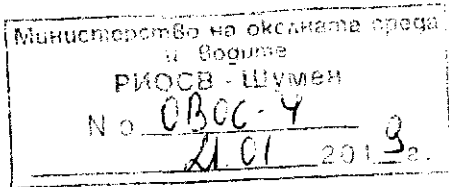 Министерство на околната среда
и водите
РИОСВ - Шумен
No ОВОС-4
21.01 2019г.